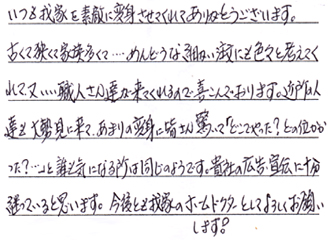 いつも我家を素敵に変身させてくれてありがとうございます。
古くて狭くて家族多くて……めんどうな細い注にも色々と考えてく
れて又……職人さん達が来てくれるので喜こんでおります。近所の人
達も大勢見に来て、あまりの変身に皆さん驚いて「どこでやった?どの位かか
った?…」と誰も気になる所は同じのようです。貴社の広告・宣伝に十分
なっていると思います。今後とも我家のホームドクターとしてよろしくお願い
します。